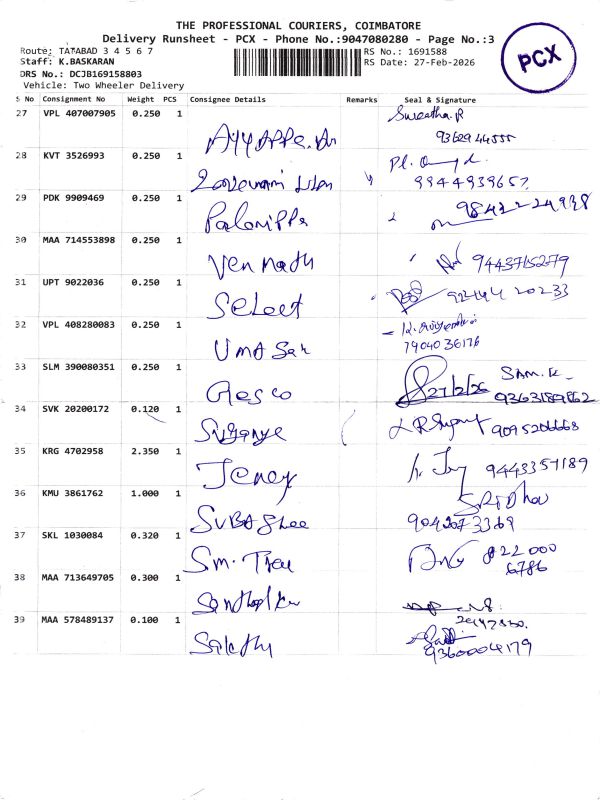 THE PROFESSIONAL COURIERS, COIMBATORE
Delivery Runsheet - PCX - Phone No.:9047080280 - Page No.:3
Route: TATABAD 3 4 5 6 7
RS No.: 1691588
Staff: K.BASKARAN
RS Date: 27-Feb-2026
DRS No.: DCJB169158803
Vehicle: Two Wheeler Delivery
PCX
S No Consignment No Weight PCS Consignee Details Remarks Seal & Signature
27 VPL 407007905 0.250 1 Sweatha.R
9362944555
28 KVT 3526993 0.250 1
9944939657
29 PDK 9909469 0.250 1 Palanippa
30 MAA 714553898 0.250 1 Ven Nath 9443715279
31 UPT 9022036 0.250 1 Select
32 VPL 408280083 0.250 1 Uma Sak
7904036176
33 SLM 390080351 0.250 1 Gesco 27/2/26 SAM.K
9363189862
34 SVK 20200172 0.120 1 Suganye 9095206668
35 KRG 4702958 2.350 1 Jeney 9443357189
36 KMU 3861762 1.000 1 SUBA Shee SRIDhar
9042073369
37 SKL 1030084 0.320 1 Sm. Thau 822000
6786
38 MAA 713649705 0.300 1
39 MAA 578489137 0.100 1 Sakthy
9360004179